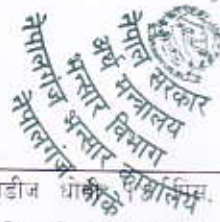 नेपाल सरकार
अर्थ मन्त्रालय
भन्सार विभाग
नेपालगंज भन्सार कार्यालय
नेपालगंज बाँके
डीज धोबी